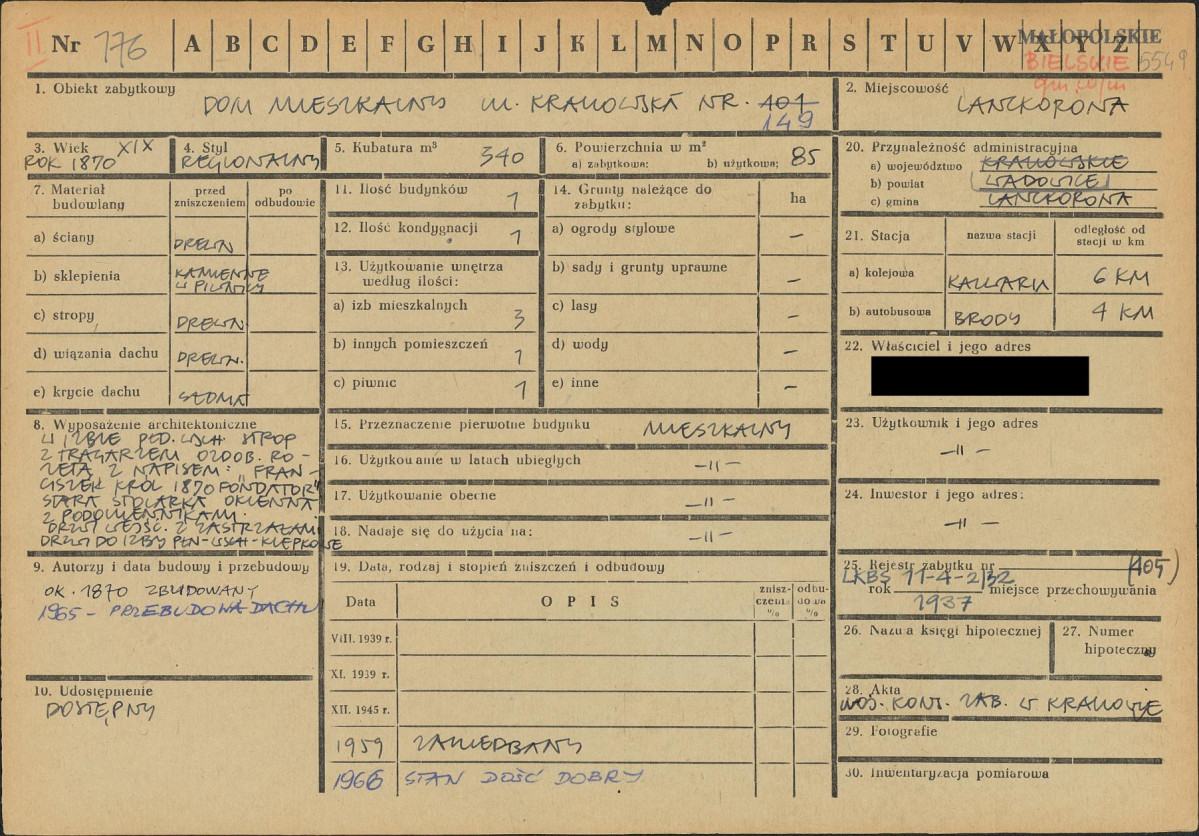 II Nr 176 A B C D E F G H I J K L M N O P R S T U V W X Y Z MAŁOPOLSKIE
BIELSKIE 5549
gm. w/m
1. Obiekt zabytkowy DOM MIESZKALNY UL. KRAKOWSKA NR. 101 149
2. Miejscowość LANCKORONA
3. Wiek XIX ROK 1870
4. Styl REGIONALNY
5. Kubatura m³ 340
6. Powierzchnia w m²
a) zabytkowa: b) użytkowa: 85
20. Przynależność administracyjna
a) województwo KRAKOWSKIE
b) powiat WADOWICE
c) gmina LANCKORONA
7. Materiał budowlany przed zniszczeniem po odbudowie
a) ściany DREWN
b) sklepienia KAMIENNE W PIWNICY
c) stropy DREWN.
d) wiązania dachu DREWN.
e) krycie dachu SŁOMA
11. Ilość budynków 1
12. Ilość kondygnacji 1
13. Użytkowanie wnętrza według ilości:
a) izb mieszkalnych 3
b) innych pomieszczeń 1
c) piwnic 1
14. Grunty należące do zabytku: ha
a) ogrody stylowe —
b) sady i grunty uprawne —
c) lasy —
d) wody —
e) inne —
21. Stacja nazwa stacji odległość od stacji w km
a) kolejowa KALWARIA 6 KM
b) autobusowa BRODY 4 KM
22. Właściciel i jego adres
8. Wyposażenie architektoniczne
W IZBIE PŁD. WSCH. STROP
Z TRAGARZEM OZDOB. RO-
ZETĄ Z NAPISEM: "FRAN-
CISZEK KRÓL 1870 FONDATOR"
STARA STOLARKA OKIENNA
Z PODOKIENNIKAMI.
DRZWI WEJŚC. Z ZASTRZAŁAMI
DRZWI DO IZBY PŁN-WSCH-KLEPKOWE
15. Przeznaczenie pierwotne budynku MIESZKALNY
16. Użytkowanie w latach ubiegłych —II—
17. Użytkowanie obecne —II—
18. Nadaje się do użycia na: —II—
23. Użytkownik i jego adres
—II—
24. Inwestor i jego adres:
—II—
9. Autorzy i data budowy i przebudowy
OK. 1870 ZBUDOWANY
1965 - PRZEBUDOWA DACHU
10. Udostępnienie
DOSTĘPNY
19. Data, rodzaj i stopień zniszczeń i odbudowy
Data OPIS znisz-czenia % odbu-dowa %
VIII. 1939 r.
XI. 1939 r.
XII. 1945 r.
1959 ZANIEDBANY
1966 STAN DOŚĆ DOBRY
25. Rejestr zabytku nr (405)
LKBS 11-4-2/32
rok 1937 miejsce przechowywania
26. Nazwa księgi hipotecznej
27. Numer hipoteczny
28. Akta
WOJ. KONS. ZAB. W KRAKOWIE
29. Fotografie
30. Inwentaryzacja pomiarowa